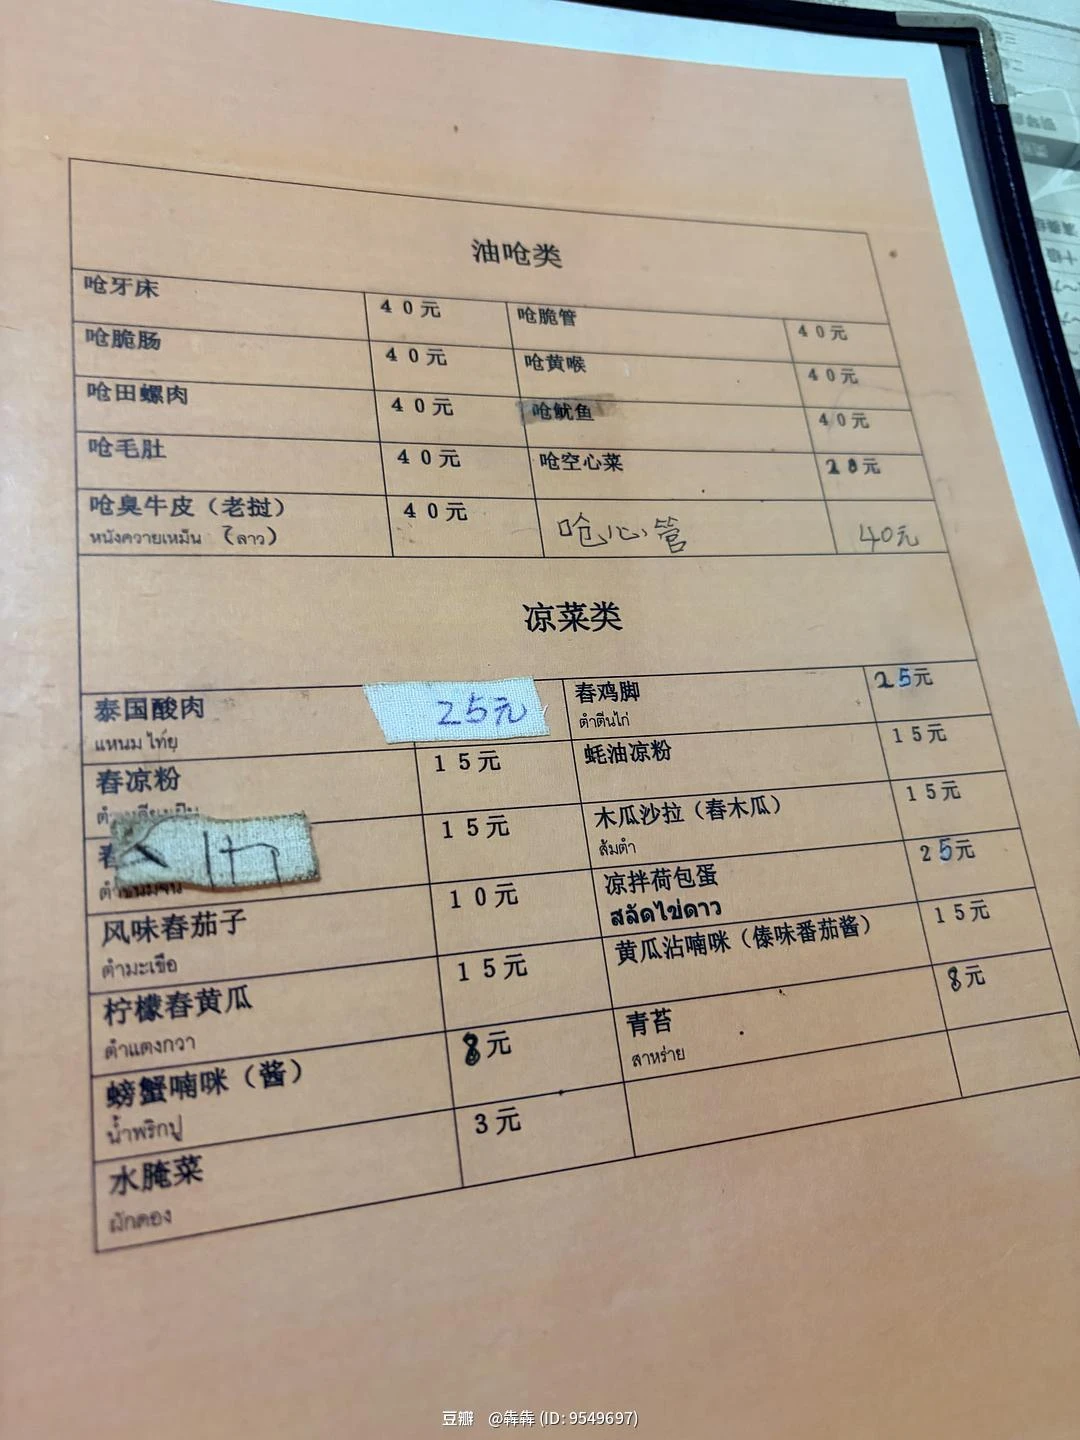 油呛类
呛牙床 40元 呛脆管 40元
呛脆肠 40元 呛黄喉 40元
呛田螺肉 40元 呛鱿鱼 40元
呛毛肚 40元 呛空心菜 28元
呛臭牛皮（老挝） 40元 呛心管 40元
หนังควายเหม็น (ลาว)
凉菜类
泰国酸肉 25元 舂鸡脚 25元
แหนม ไท่ย ตำตีนไก่
舂凉粉 15元 蚝油凉粉 15元
15元 木瓜沙拉（舂木瓜） 15元
ส้มตำ
风味舂茄子 10元 凉拌荷包蛋 25元
ตำมะเขือ สลัดไข่ดาว
柠檬舂黄瓜 15元 黄瓜沾喃咪（傣味番茄酱） 15元
ตำแตงกวา
螃蟹喃咪（酱） 8元 青苔 8元
น้ำพริกปู สาหร่าย
水腌菜 3元
ผักดอง
豆瓣 @犇犇 (ID: 9549697)